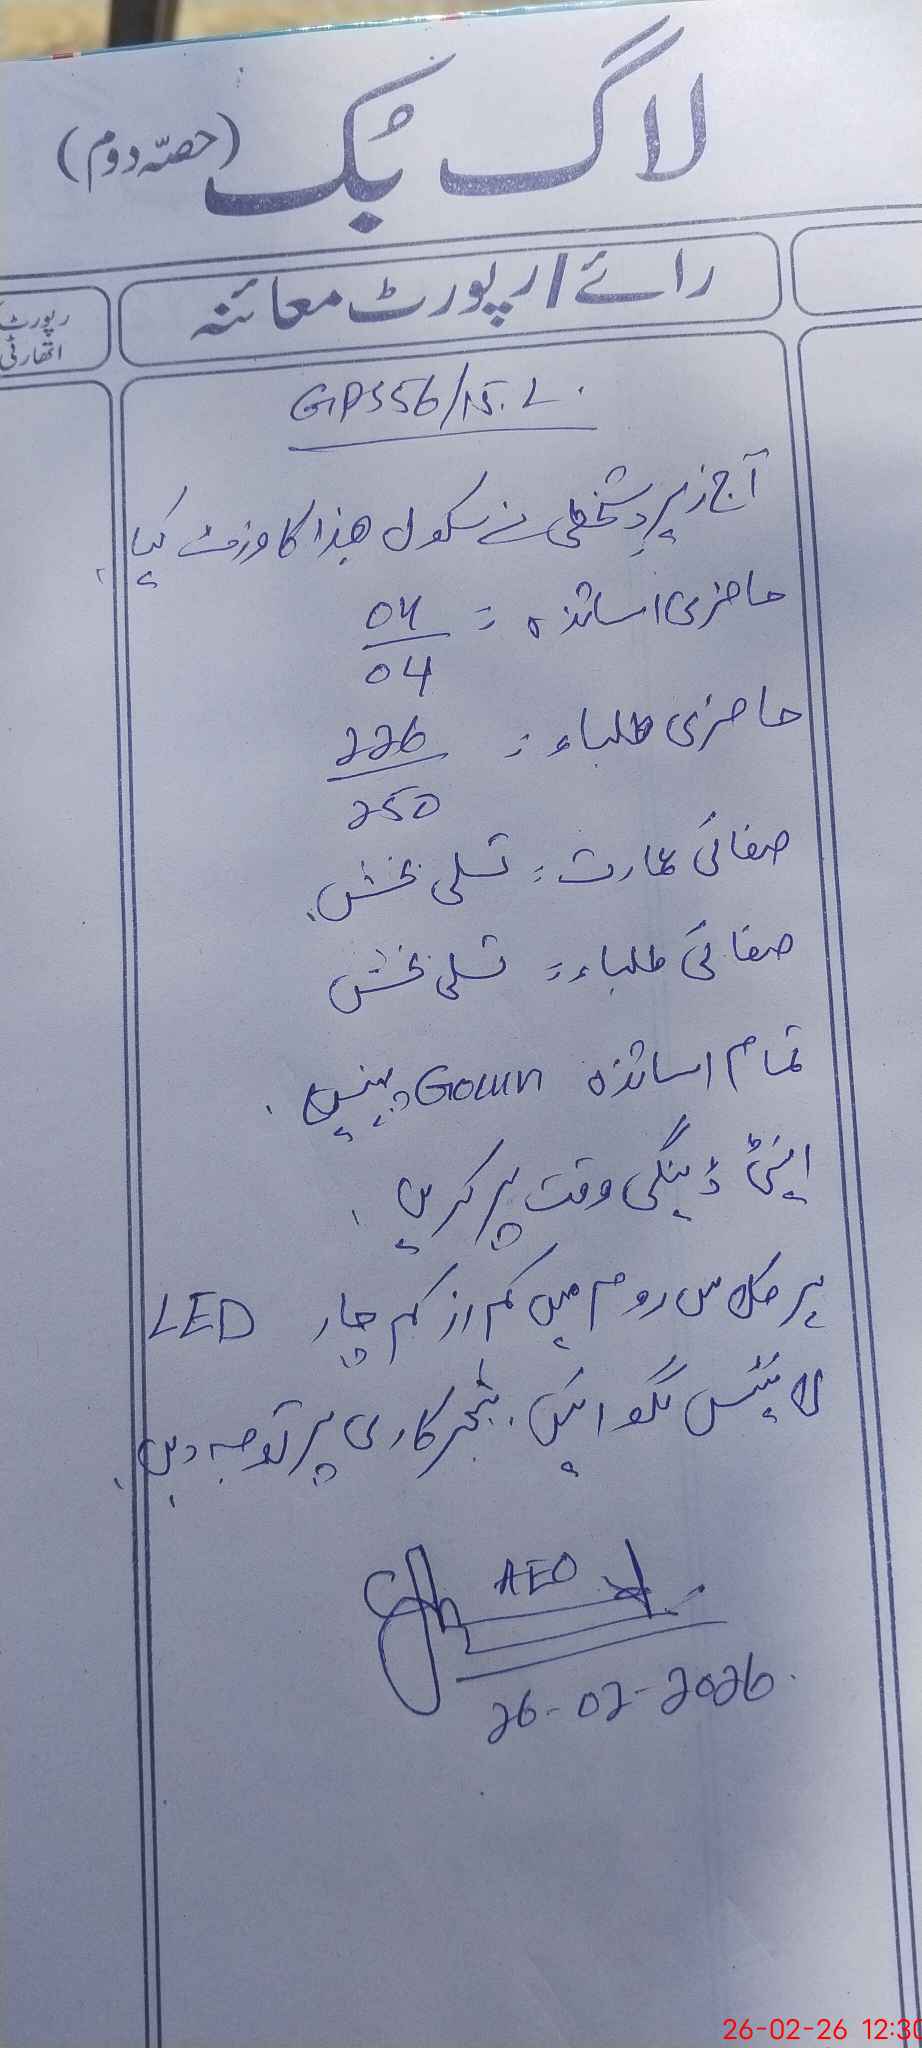 لاگ بُک (حصّہ دوم)
رائے / رپورٹ معائنہ
رپورٹ
اتھارٹی
GPS 56/15.L.
آج زیر دستخطی نے سکول ھذا کا وزٹ کیا۔
حاضری اساتذہ = 04/04
حاضری طلباء = 226/250
صفائی عمارت = تسلی بخش۔
صفائی طلباء = تسلی بخش
تمام اساتذہ Gown پہنیں۔
اینٹی ڈینگی وقت پر کریں۔
ہر کلاس روم میں کم از کم چار LED
لائیٹس لگوائیں۔ شجرکاری پر توجہ دیں۔
AEO
26-02-2026.
26-02-26 12:30